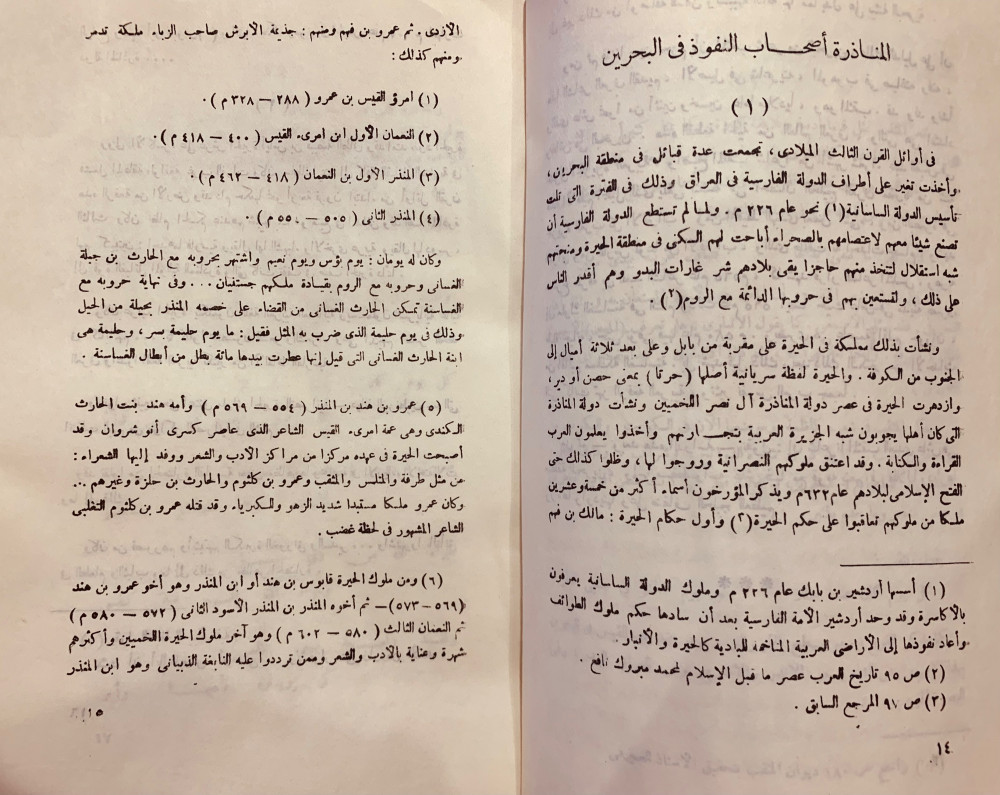 المناذرة أصحاب النفوذ فى البحرين
( ١ )
فى أوائل القرن الثالث الميلادى ، تجمعت عدة قبائل فى منطقة البحرين ،
وأخذت تغير على أطراف الدولة الفارسية فى العراق وذلك فى الفترة التى تلت
تأسيس الدولة الساسانية(١) نحو عام ٢٢٦ م . ولما لم تستطع الدولة الفارسية أن
تصنع شيئا معهم لاعتصامهم بالصحراء أباحت لهم السكنى فى منطقة الحيرة ومنحتهم
شبه استقلال لتتخذ منهم حاجزا يقى بلادهم شر غارات البدو وهم أقدر الناس
على ذلك ، ولتستعين بهم فى حروبها الدائمة مع الروم(٢) .
ونشأت بذلك مملكة فى الحيرة على مقربة من بابل وعلى بعد ثلاثة أميال إلى
الجنوب من الكوفة . والحيرة لفظة سريانية أصلها ( حرتا ) بمعنى حصن أو دير ،
وازدهرت الحيرة فى عصر دولة المناذرة آل نصر اللخميين ونشأت دولة المناذرة
التى كان أهلها يجوبون شبه الجزيرة العربية بتجارتهم وأخذوا يعلمون العرب
القراءة والكتابة . وقد اعتنق ملوكهم النصرانية وروجوا لها ، وظلوا كذلك حتى
الفتح الإسلامى لبلادهم عام ٦٣٢م ويذكر المؤرخون أسماء أكثر من خمسة وعشرين
ملكا من ملوكهم تعاقبوا على حكم الحيرة(٣) وأول حكام الحيرة : مالك بن فهم
(١) أسسها أردشير بن بابك عام ٢٢٦ م وملوك الدولة الساسانية يعرفون
بالأكاسرة وقد وحد أردشير الأمة الفارسية بعد أن سادها حكم ملوك الطوائف
وأعاد نفوذها إلى الأراضى العربية المتاخمه للبادية كالحيرة والأنبار .
(٢) ص ٩٥ تاريخ العرب عصر ما قبل الإسلام لمحمد مبروك نافع .
(٣) ص ٩٧ المرجع السابق .
١٤
الأزدى . ثم عمرو بن فهم ومنهم : جذيمة الأبرش صاحب الزباء ملكة تدمر
ومنهم كذلك :
(١) أمرؤ القيس بن عمرو ( ٢٨٨ – ٣٢٨ م ) .
(٢) النعمان الأول ابن امرىء القيس ( ٤٠٠ – ٤١٨ م ) .
(٣) المنذر الأول بن النعمان ( ٤١٨ – ٤٦٢ م ) .
(٤) المنذر الثانى ( ٥٠٥ – ٥٥٠ م ) .
وكان له يومان : يوم بؤس ويوم نعيم واشتهر بحروبه مع الحارث بن جبلة
الغسانى وحروبه مع الروم بقيادة ملكهم جستنيان ... وفى نهاية حروبه مع
الغساسنة تمكن الحارث الغسانى من القضاء على خصمه المنذر بحيلة من الحيل
وذلك فى يوم حليمة الذى ضرب به المثل فقيل : ما يوم حليمة بسر ، وحليمة هى
ابنة الحارث الغسانى التى قيل إنها عطرت بيدها مائة بطل من أبطال الغساسنة .
(٥) عمرو بن هند بن المنذر ( ٥٥٤ – ٥٦٩ م ) وأمه هند بنت الحارث
الكندى وهى عمة امرىء القيس الشاعر الذى عاصر كسرى أنو شروان وقد
أصبحت الحيرة فى عهده مركزا من مراكز الأدب والشعر ووفد إليها الشعراء :
من مثل طرفة والمتلمس والمثقب وعمرو بن كلثوم والحارث بن حلزة وغيرهم ...
وكان عمرو ملكا مستبدا شديد الزهو والكبرياء وقد قتله عمرو بن كلثوم التغلبى
الشاعر المشهور فى لحظة غضب .
(٦) ومن ملوك الحيرة قابوس بن هند أو ابن المنذر وهو أخو عمرو بن هند
(٥٦٩–٥٧٣)– ثم أخوه المنذر بن المنذر الأسود الثانى ( ٥٧٢ – ٥٨٠ م )
ثم النعمان الثالث ( ٥٨٠ – ٦٠٢ م ) وهو آخر ملوك الحيرة اللخميين وأكثرهم
شهرة وعناية بالأدب والشعر وممن ترددوا عليه النابغة الذبيانى وهو ابن المنذر
١٥